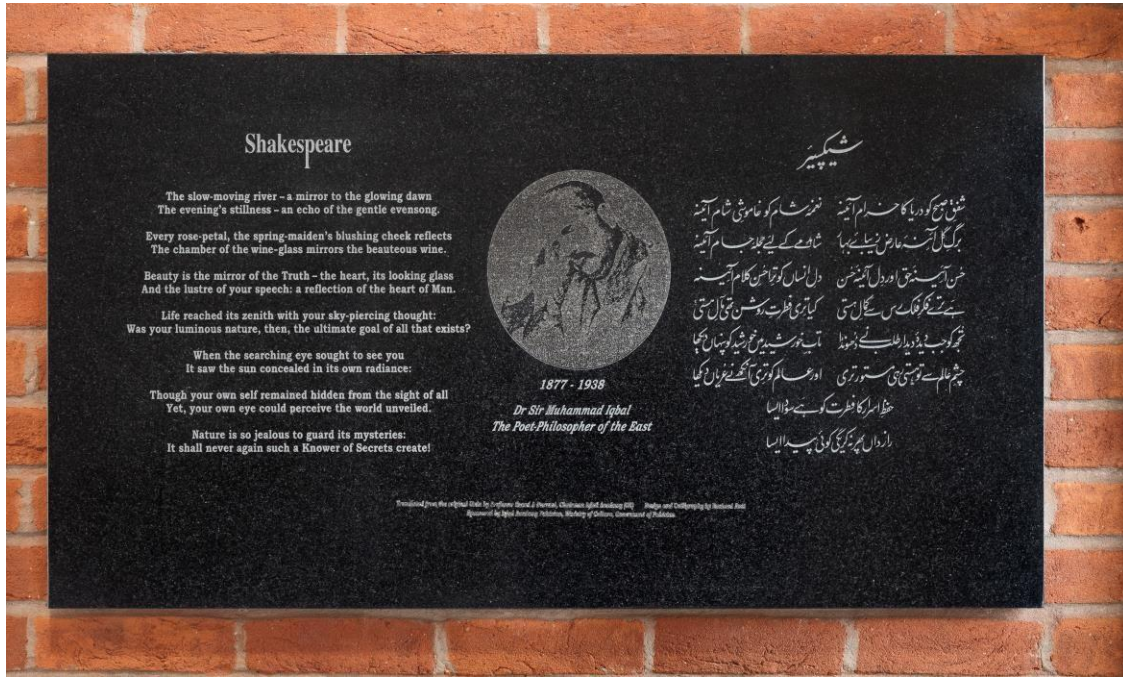 Shakespeare
The slow-moving river – a mirror to the glowing dawn
The evening's stillness – an echo of the gentle evensong.
Every rose-petal, the spring-maiden's blushing cheek reflects
The chamber of the wine-glass mirrors the beauteous wine.
Beauty is the mirror of the Truth – the heart, its looking glass
And the lustre of your speech: a reflection of the heart of Man.
Life reached its zenith with your sky-piercing thought:
Was your luminous nature, then, the ultimate goal of all that exists?
When the searching eye sought to see you
It saw the sun concealed in its own radiance:
Though your own self remained hidden from the sight of all
Yet, your own eye could perceive the world unveiled.
Nature is so jealous to guard its mysteries:
It shall never again such a Knower of Secrets create!
1877 - 1938
Dr Sir Muhammad Iqbal
The Poet-Philosopher of the East
شیکسپیئر
شفق صبح کو دریا کا خرام آئینہ نغمۂ شام کو خاموشی شام آئینہ
برگ گل آئنۂ عارض زیبائے بہار شاہد مے کے لیے حجلۂ جام آئینہ
حسن آئینۂ حق اور دل آئینۂ حسن دل انساں کو ترا حسن کلام آئینہ
ہے ترے فکر فلک رس سے کمال ہستی کیا تری فطرت روشن تھی مآل ہستی
تجھ کو جب دیدۂ دیدار طلب نے ڈھونڈا تاب خورشید میں خورشید کو پنہاں دیکھا
چشم عالم سے تو ہستی رہی مستور تری اور عالم کو تری آنکھ نے عریاں دیکھا
حفظ اسرار کا فطرت کو ہے سودا ایسا
رازداں پھر نہ کرے گی کوئی پیدا ایسا
Translated from the original Urdu by Professor Saeed A Durrani, Chairman Iqbal Academy (UK) Design and Calligraphy by Rasheed Butt
Sponsored by Iqbal Academy Pakistan, Ministry of Culture, Government of Pakistan